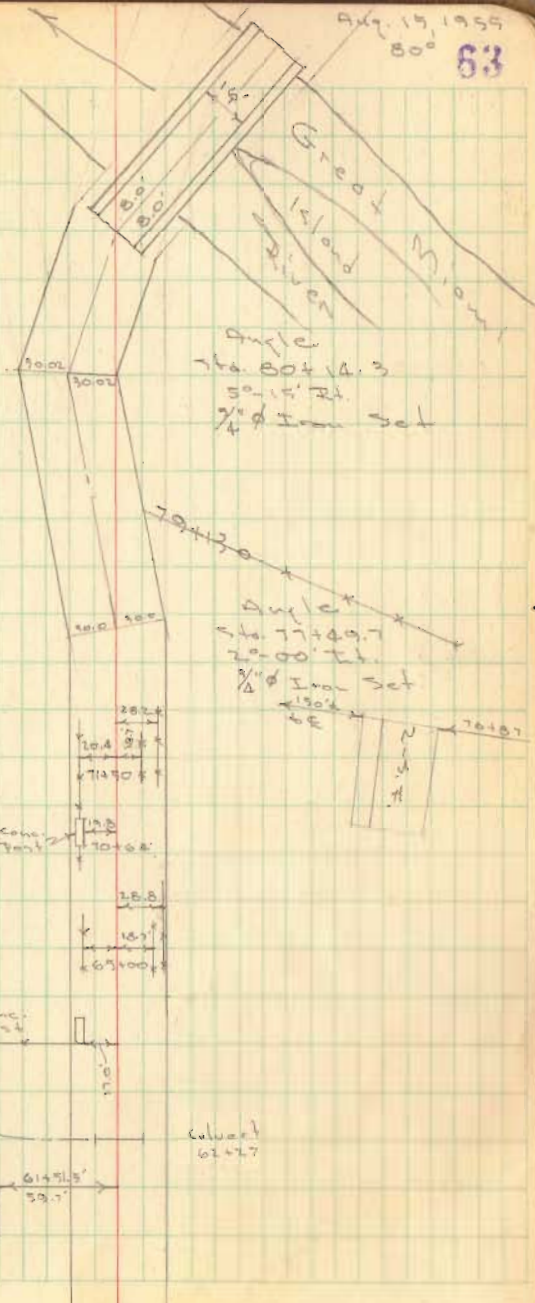 Aug. 15, 1955
80°
63
16'
8.0'
8.0'
Great Miami
Island
River
30.02
30.02
Angle
Sta. 80+14.3
5°-15' Rt.
3/4" ø Iron Set
79+30
Angle
Sta. 77+49.7
2°-00' Rt.
3/4" ø Iron Set
30.0
30.0
150'±
76+87
28.2
20.4
71+50
conc.
Post
19.8
70+68
28.8
18.7
65+00
Culvert
62+27
61+51.5'
59.7'